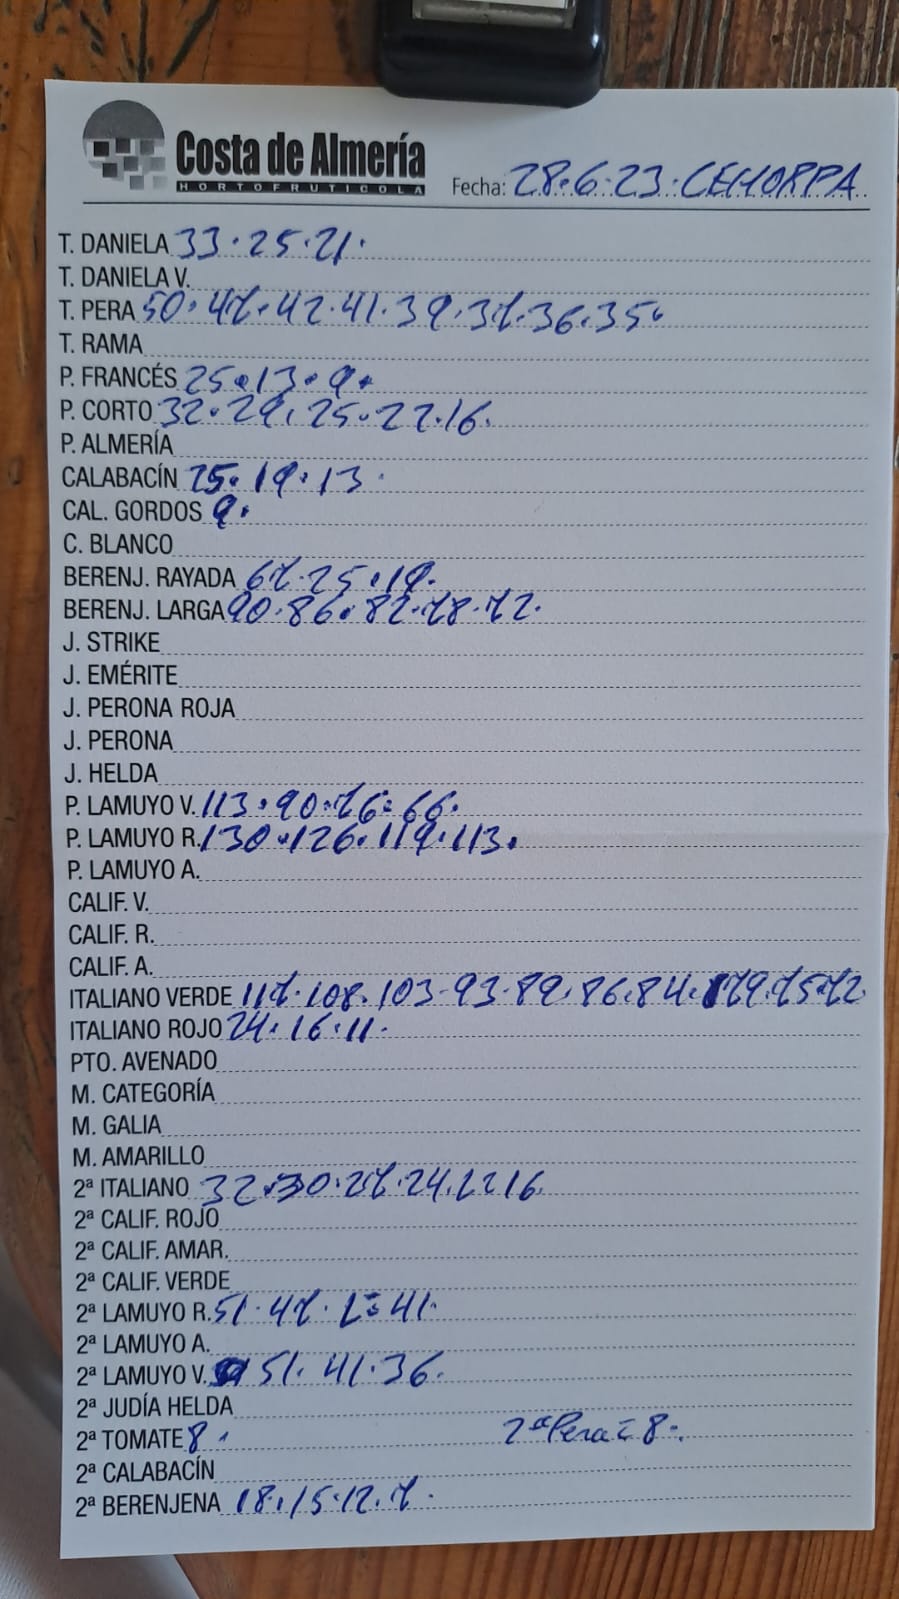 Costa de Almería
HORTOFRUTICOLA
Fecha: 28.6.23.CEHORPA
T. DANIELA 33.25.21.
T. DANIELA V.
T. PERA 50.47.42.41.39.37.36.35.
T. RAMA
P. FRANCÉS 25.13.9.
P. CORTO 32.29.25.22.16.
P. ALMERÍA
CALABACÍN 25.19.13.
CAL. GORDOS 9.
C. BLANCO
BERENJ. RAYADA 67.25.19.
BERENJ. LARGA 90.86.82.78.72.
J. STRIKE
J. EMÉRITE
J. PERONA ROJA
J. PERONA
J. HELDA
P. LAMUYO V. 113.90.76.66.
P. LAMUYO R. 130.126.119.113.
P. LAMUYO A.
CALIF. V.
CALIF. R.
CALIF. A.
ITALIANO VERDE 117.108.103.93.89.86.84.79.75.72.
ITALIANO ROJO 24.16.11.
PTO. AVENADO
M. CATEGORÍA
M. GALIA
M. AMARILLO
2ª ITALIANO 32.30.27.24.L=16.
2ª CALIF. ROJO
2ª CALIF. AMAR.
2ª CALIF. VERDE
2ª LAMUYO R. 51.47.L=41.
2ª LAMUYO A.
2ª LAMUYO V. 51.41.36.
2ª JUDÍA HELDA
2ª TOMATE 8. 2ª Pera=8.
2ª CALABACÍN
2ª BERENJENA 18.15.12.7.